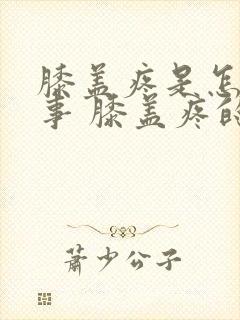 膝盖疼是怎
事 膝盖疼的
萧少公子